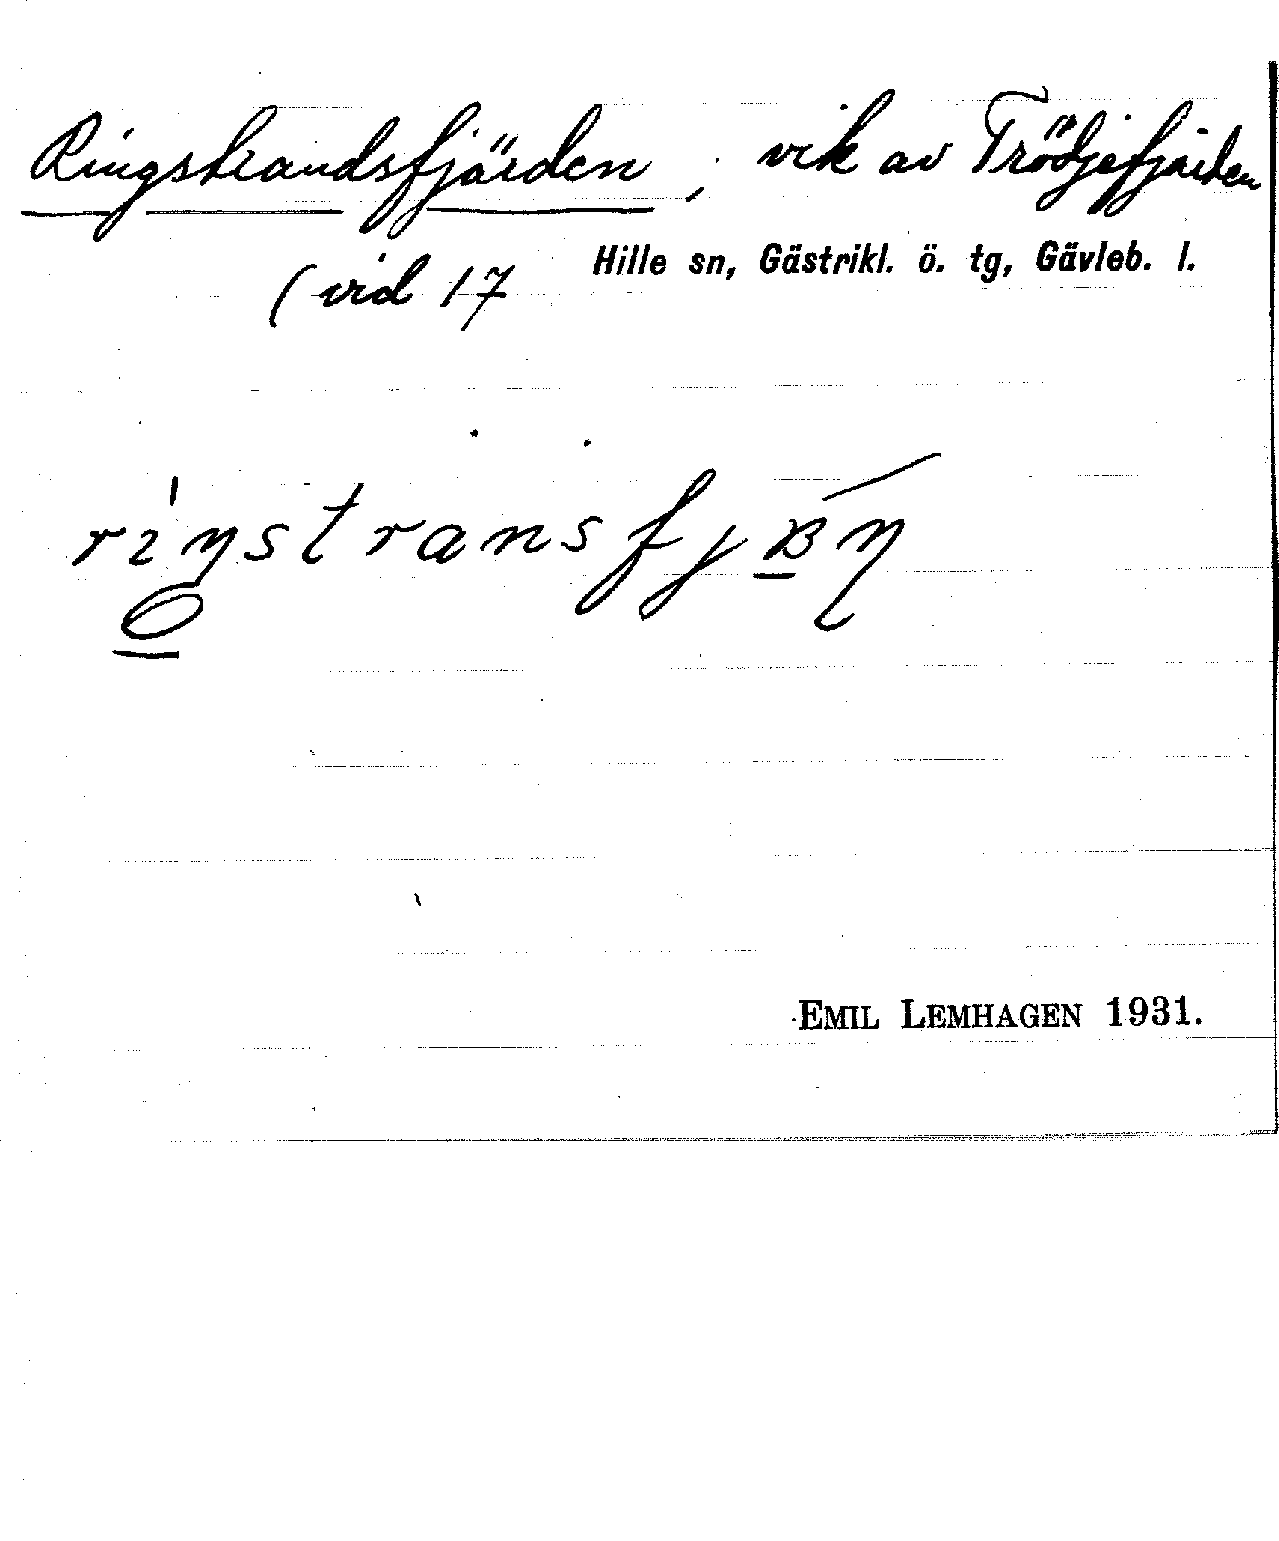 Ringstrandsfjärden, vik av Trödjefjärden
Hille sn, Gästrikl. ö. tg, Gävleb. l.
(vid 17
EMIL LEMHAGEN 1931.